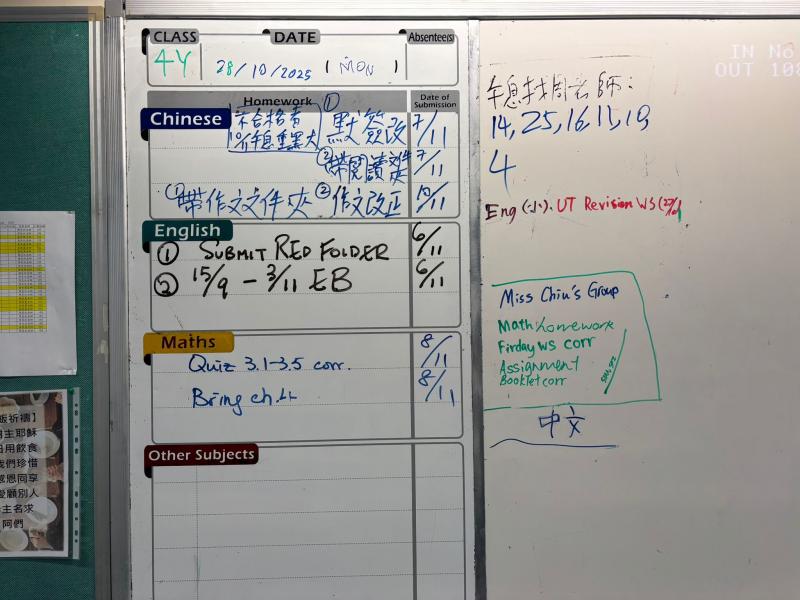 CLASS DATE Absentee(s)
4Y 28/10/2025 (MON)
Homework Date of Submission
Chinese 不合格者 ① 默簽改 7/11
②帶閱讀文件夾 7/11
①帶作文文件夾 ②作文改正 10/11
English
① SUBMIT RED FOLDER 6/11
② 15/9 - 3/11 EB 6/11
Maths
Quiz 3.1-3.5 corr. 8/11
Bring ch. 8/11
Other Subjects
IN No
OUT 108
午息找周老師:
14, 25, 16, 11, 19,
4
Eng (小). UT Revision WS
Miss Chiu's Group
Math homework
Firday WS corr
Assignment
Booklet corr
中文
飯祈禱】
主耶穌
用飲食
我們珍惜
感恩同享
愛顧別人
主名求
阿們